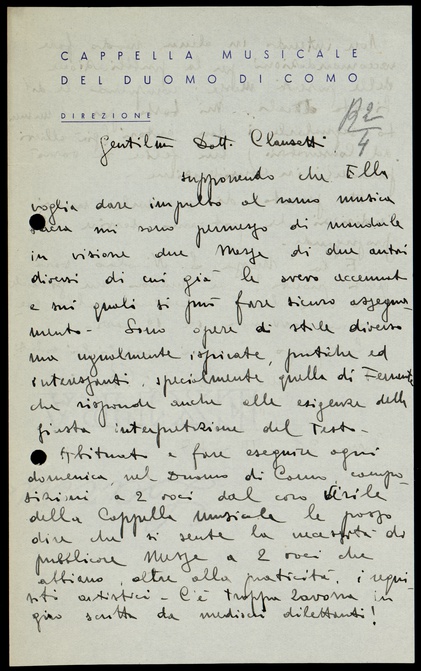 CAPPELLA MUSICALE
DEL DUOMO DI COMO
DIREZIONE
R2/4
Gentilm Dott. Clausetti
supponendo che Ella
voglia dare impulso al ramo musica
sacra mi sono permesso di mandarle
in visione due Messe di due autori
diversi di cui già le avevo accennat
e sui quali si può fare sicuro assegna-
mento - Sono opere di stile diverso
ma ugualmente ispirate, pratiche ed
interessanti, specialmente quella di
che risponde anche alle esigenze della
giusta interpretazione del Testo -
Abituato a fare eseguire ogni
domenica, nel Duomo di Como, compo-
sizioni a 2 voci dal coro Virile
della Cappella Musicale le posso
dire che si sente la necessità di
pubblicare Messe a 2 voci che
abbiano, oltre alla praticità, i requi-
siti artistici - C'è troppa zavorra in
giro scritta da mediocri dilettanti!